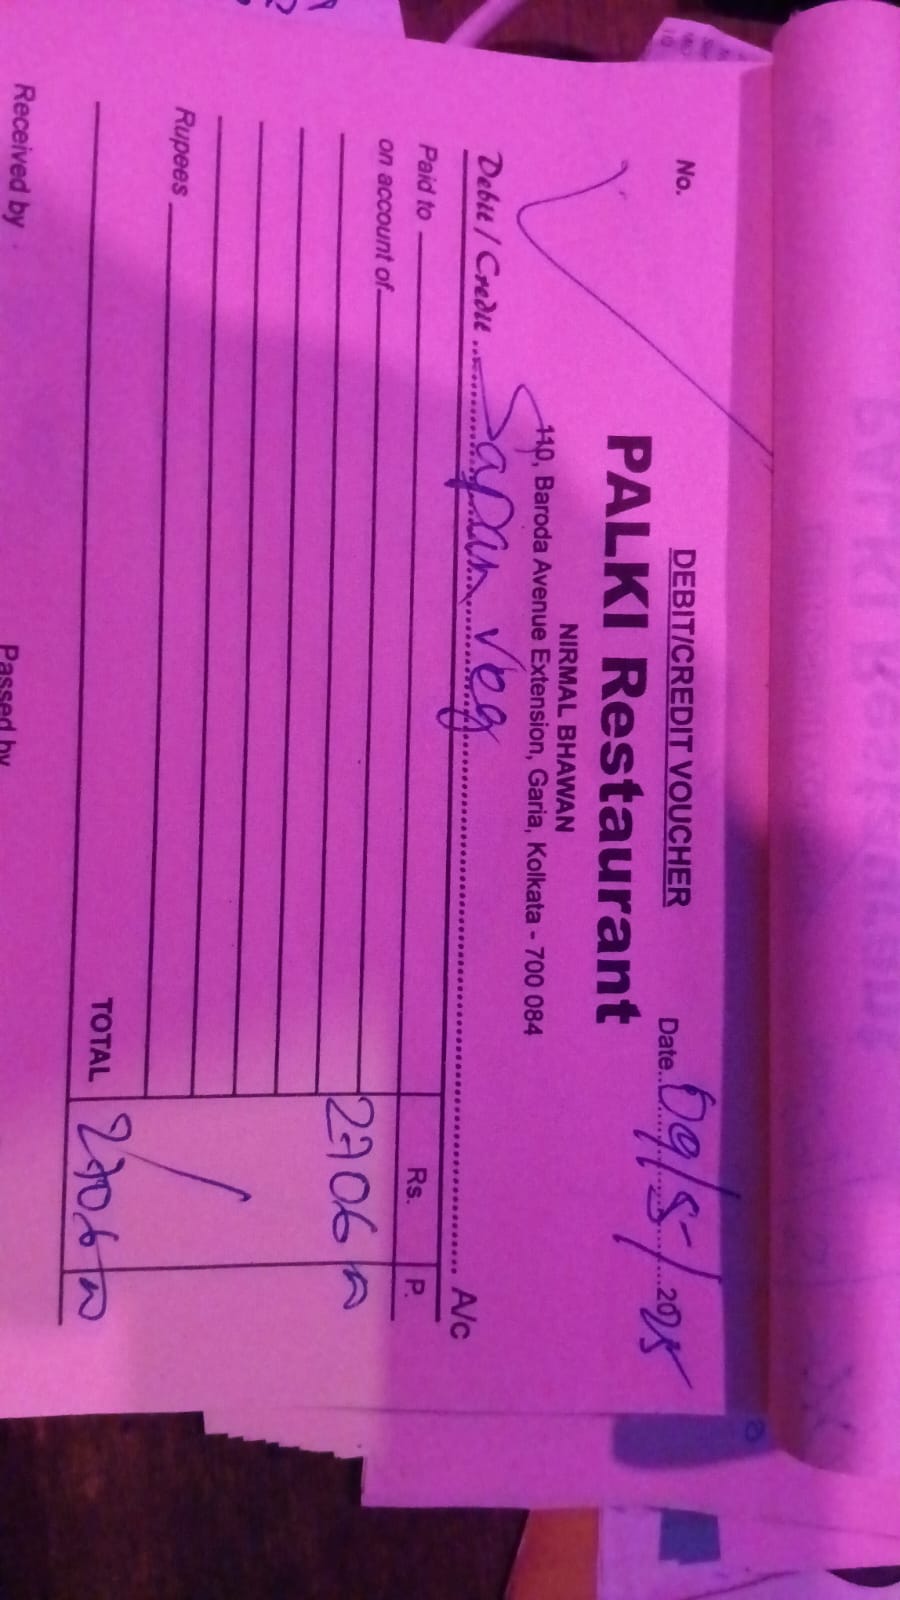 DEBIT/CREDIT VOUCHER
No. Date.. 09/5/2025
PALKI Restaurant
NIRMAL BHAWAN
110, Baroda Avenue Extension, Garia, Kolkata - 700 084
Debit / Credit Sapan veg A/c
Paid to Rs. P.
on account of 2706 00
Rupees
TOTAL 2706 00
Received by Passed by